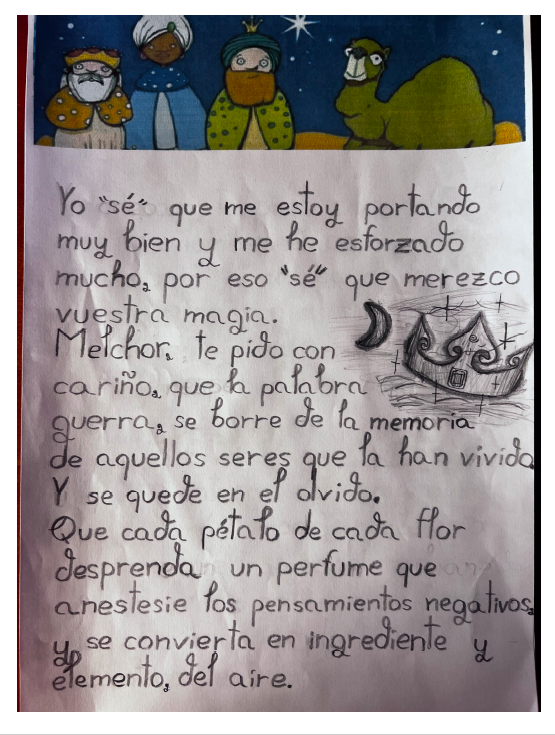 Yo "sé" que me estoy portando
muy bien y me he esforzado
mucho, por eso "sé" que merezco
vuestra magia.
Melchor, te pido con
cariño, que la palabra
guerra, se borre de la memoria
de aquellos seres que la han vivido
Y se quede en el olvido.
Que cada pétalo de cada flor
desprenda un perfume que
anestesie los pensamientos negativos,
y, se convierta en ingrediente y
elemento, del aire.